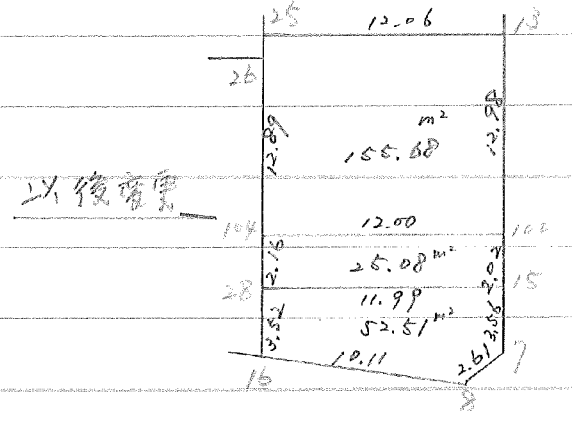 25
12.06
13
26
12.89
m²
155.68
12.98
以後変更
104
12.00
102
2.16
25.08m²
2.02
28
11.99
15
3.52
52.51m²
3.56
10.11
2.61
7
16
8